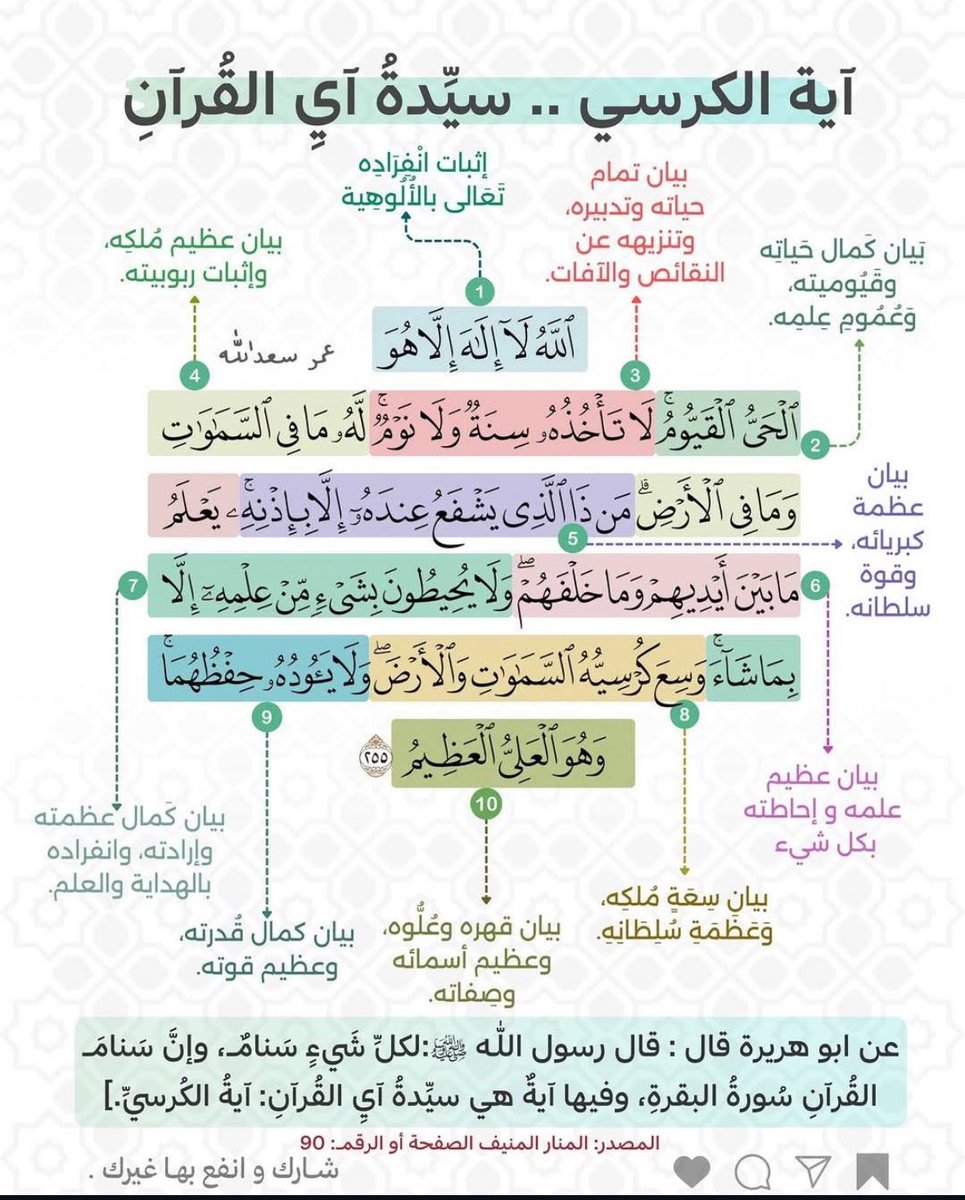 آية الكرسي .. سيِّدةُ آيِ القُرآنِ
إثبات انْفِرَادِه
تَعَالى بالأُلُوهِية
بيان تمام
حياته وتدبيره،
وتنزيهه عن
النقائص والآفات.
بَيان كَمال حَياتِه
وقَيُوميته،
وَعُمُومِ عِلمِه.
بيان عظيم مُلكِه،
وإثبات ربوبيته.
1
ٱللَّهُ لَآ إِلَٰهَ إِلَّا هُوَ
عمر سعدالله
4
3
ٱلْحَىُّ ٱلْقَيُّومُ ۚ لَا تَأْخُذُهُۥ سِنَةٌ وَلَا نَوْمٌ ۚ لَّهُۥ مَا فِى ٱلسَّمَٰوَٰتِ
2
وَمَا فِى ٱلْأَرْضِ ۗ مَن ذَا ٱلَّذِى يَشْفَعُ عِندَهُۥٓ إِلَّا بِإِذْنِهِۦ ۚ يَعْلَمُ
5
بيان
عظمة
كبريائه،
وقوة
سلطانه.
مَا بَيْنَ أَيْدِيهِمْ وَمَا خَلْفَهُمْ ۖ وَلَا يُحِيطُونَ بِشَىْءٍ مِّنْ عِلْمِهِۦٓ إِلَّا
6
7
بِمَا شَآءَ ۚ وَسِعَ كُرْسِيُّهُ ٱلسَّمَٰوَٰتِ وَٱلْأَرْضَ ۖ وَلَا يَـُٔودُهُۥ حِفْظُهُمَا ۚ
8
9
وَهُوَ ٱلْعَلِىُّ ٱلْعَظِيمُ ٢٥٥
10
بيان عظيم
علمه و إحاطته
بكل شيء
بيان كَمال عظمته
وإرادته، وانفراده
بالهداية والعلم.
بيان سِعَةٍ مُلكِه،
وَعَظَمَةِ سُلِطَانِهِ.
بيان كمال قُدرته،
وعظيم قوته.
بيان قهره وعُلُّوه،
وعظيم أسمائه
وصِفاته.
عن ابو هريرة قال : قال رسول اللّه ﷺ:لكلِّ شَيءٍ سَنامٌ، وإنَّ سَنامَ
القُرآنِ سُورةُ البقرةِ، وفيها آيةٌ هي سيِّدةُ آيِ القُرآنِ: آيةُ الكُرسيِّ.]
المصدر: المنار المنيف الصفحة أو الرقم: 90
شارك و انفع بها غيرك .